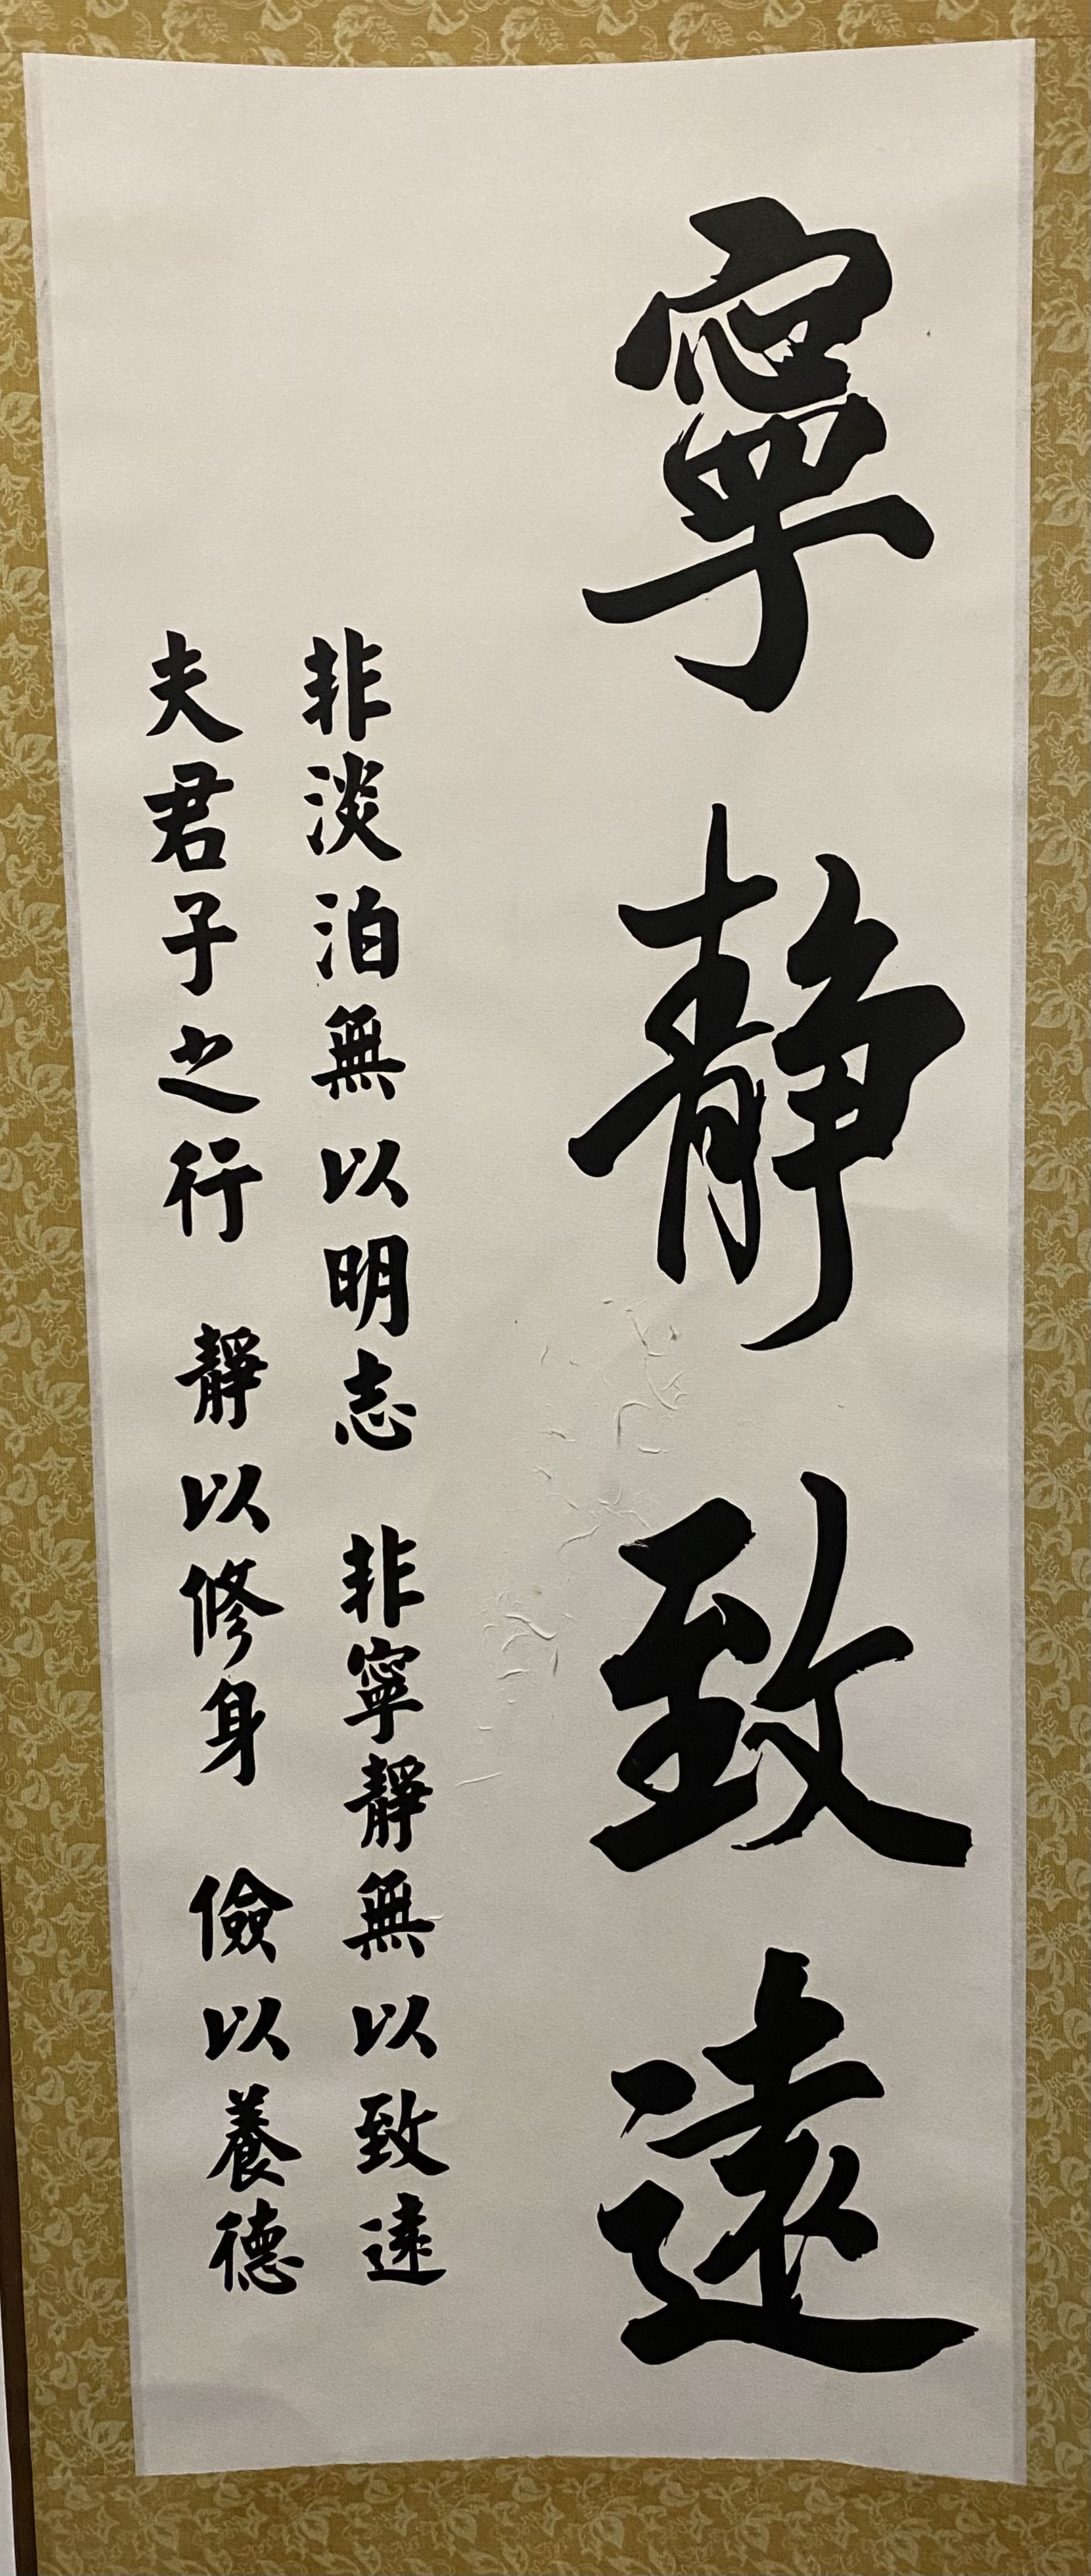 寧靜致遠
非淡泊無以明志 非寧靜無以致遠
夫君子之行 靜以修身 儉以養德